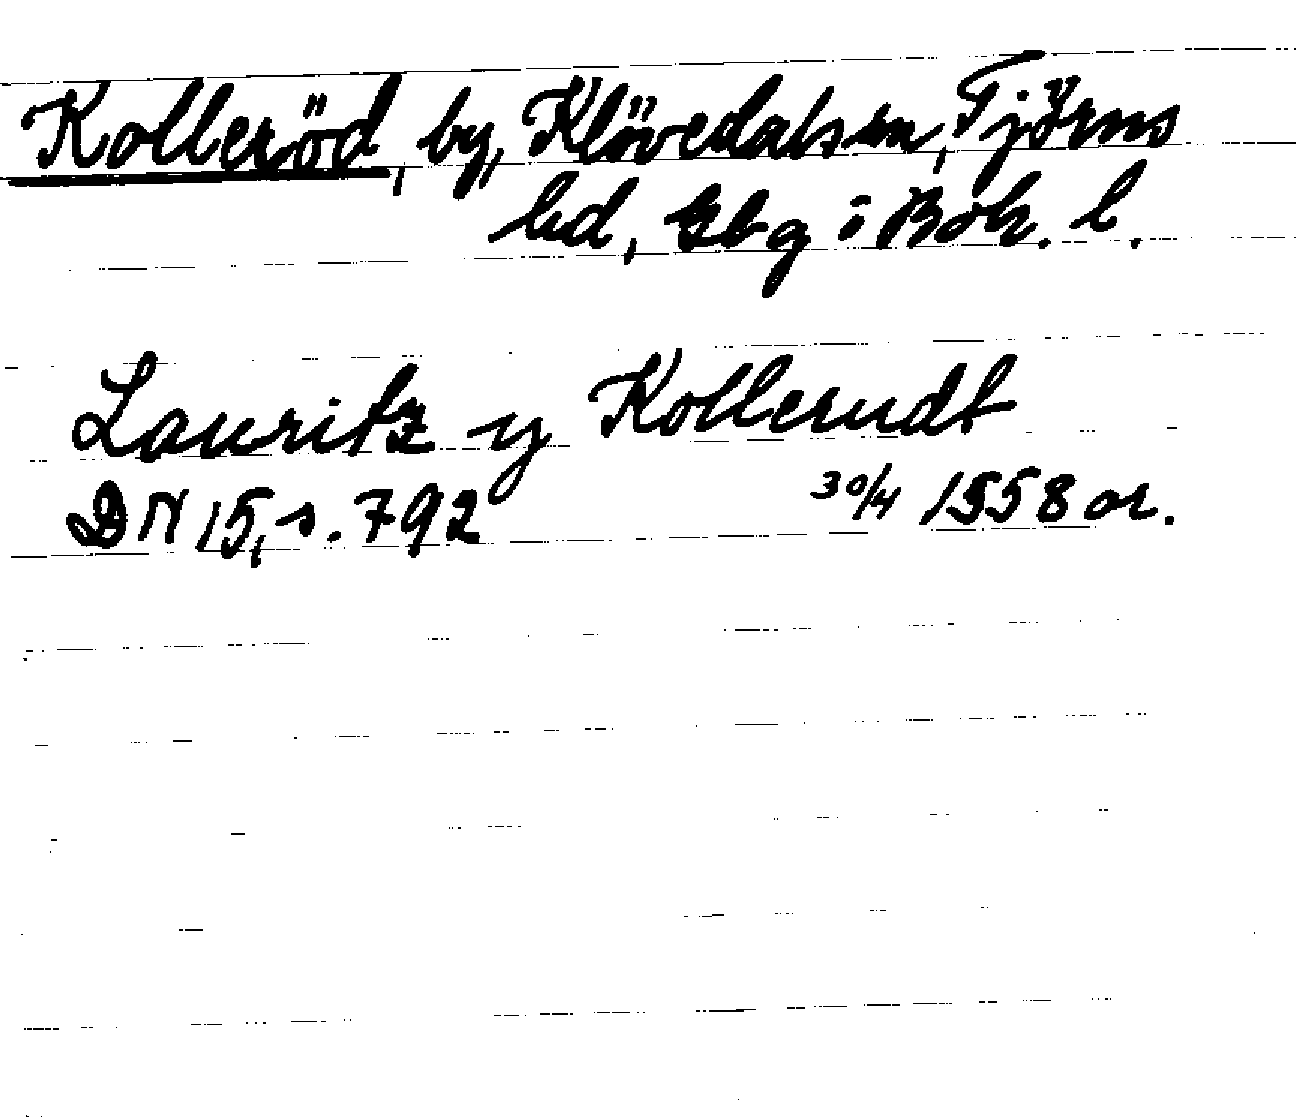 Kolleröd, by, Klövedals sn, Tjörns
hd, Gbg i Boh. l.
Lauritz y Kollerudt
DN 15, s. 792 30/4 1558 or.